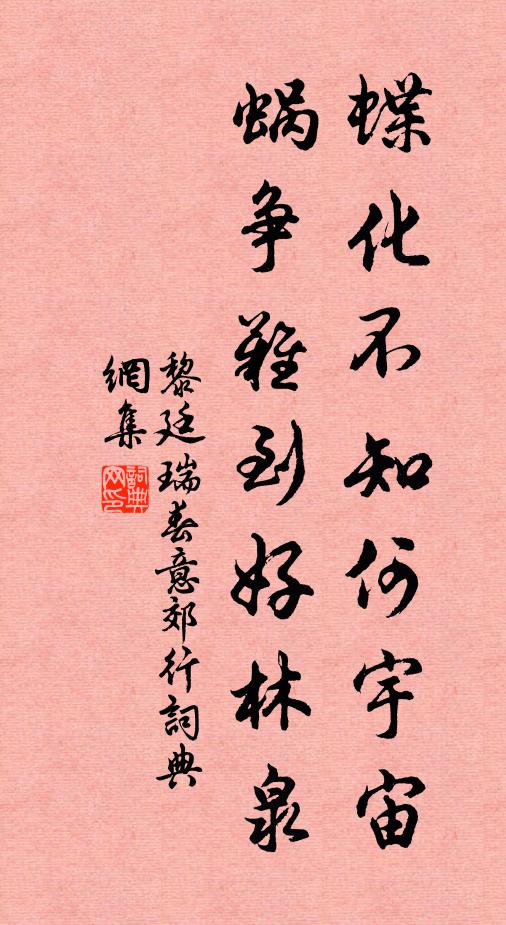 蝶化不知何宇宙
蝸争難到好林泉
黎廷瑞春意郊行詞典
網集
詞典
网印